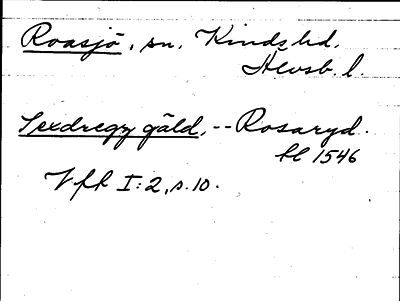 Roasjö, sn, Kinds hd.
Älvsb. l.
Sexdregz gäld, -- Rosaryd.
hl 1546
Vfh I:2, s. 10.